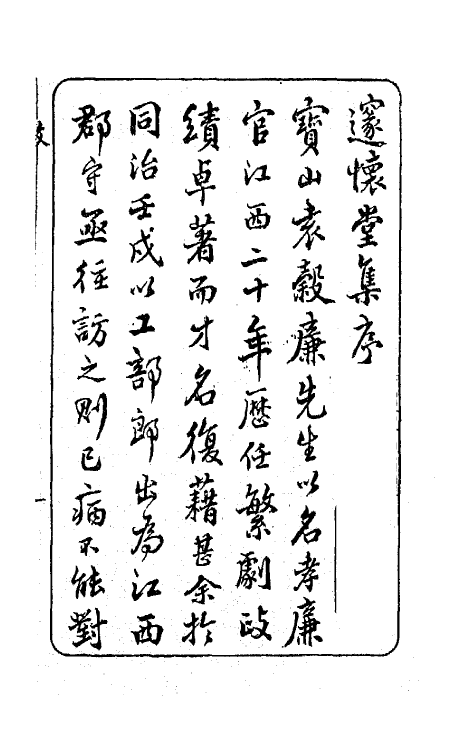 邃懷堂集序
寶山袁穀廉先生以名孝廉
官江西二十年歷任繁劇政
績卓著而才名復藉甚余於
同治壬戌以工部郎出為江西
郡守亟往訪之則已病不能對